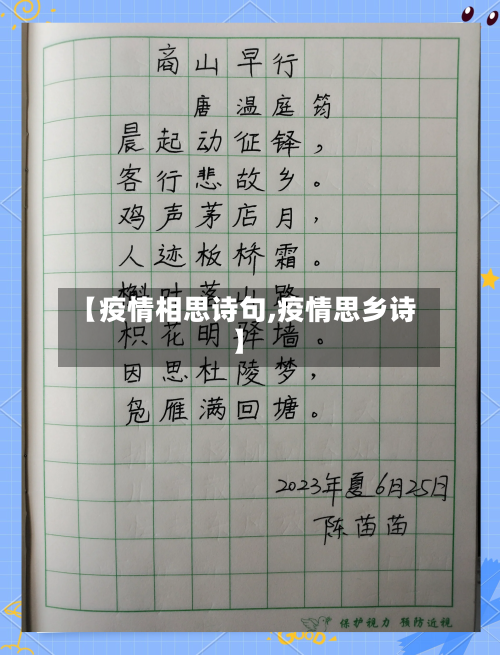 商山早行
唐 温庭筠
晨起动征铎，
客行悲故乡。
鸡声茅店月，
人迹板桥霜。
槲叶落山路
【疫情相思诗句,疫情思乡诗
】
枳花明驿墙。
因思杜陵梦，
凫雁满回塘。
2023年夏 6月25日
陈苗苗
保护视力 预防近视
Good